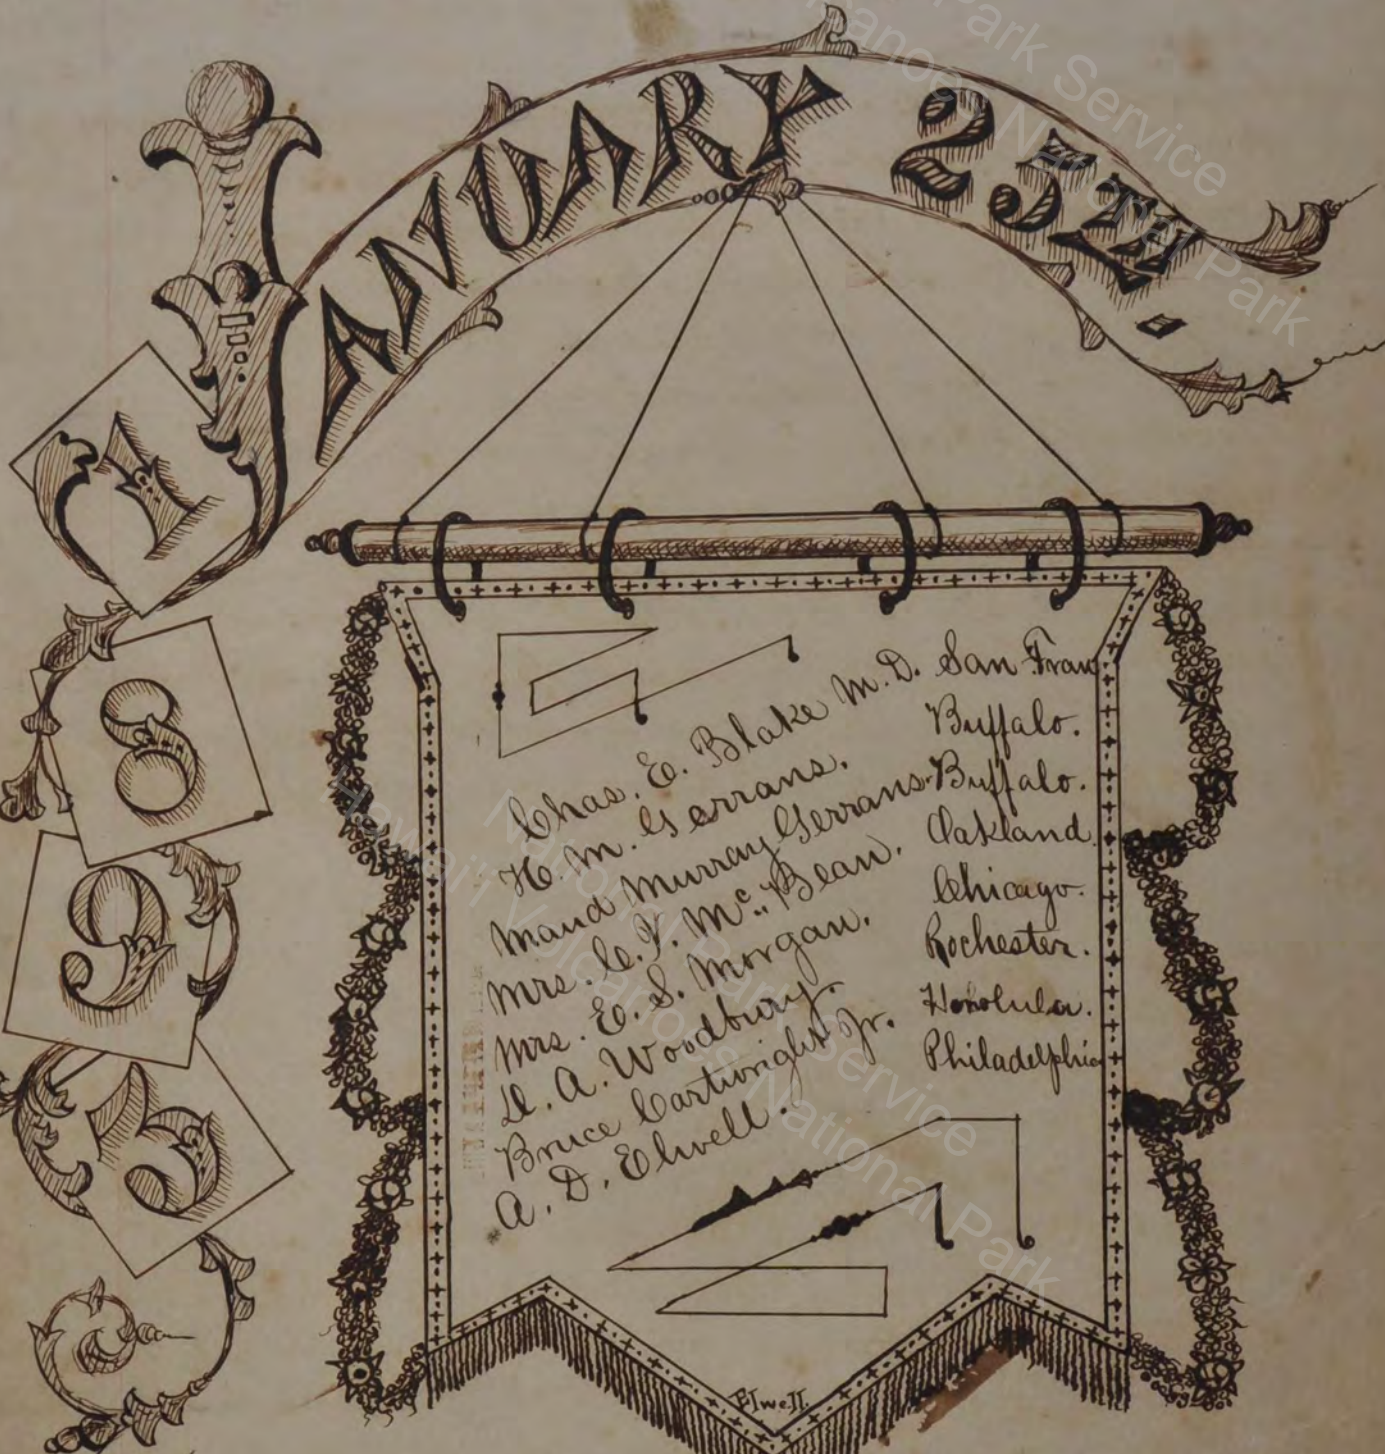 JANUARY 25TH.
1895
Chas. E. Blake M.D. San Fran
H. M. Gerrans. Buffalo.
Maud Murray Gerrans. Buffalo.
Mrs. C. V. Mc.Bean. Oakland.
Mrs. E. S. Morgan. Chicago.
D. A. Woodbury. Rochester.
Bruce Cartwright Jr. Honolulu.
A. D. Elwell. Philadelphia
Elwell.
Park Service
Hawai'i Volcanoes National Park
National Park Service